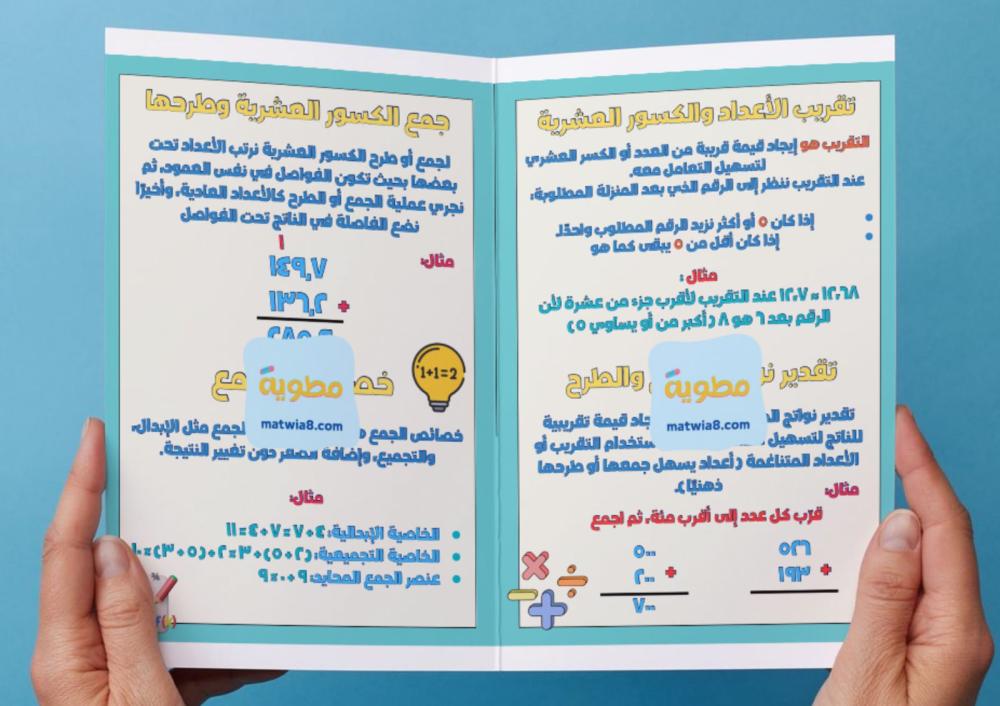 تقريب الأعداد والكسور العشرية
التقريب هو إيجاد قيمة قريبة من العدد أو الكسر العشري
لتسهيل التعامل معه.
عند التقريب ننظر إلى الرقم الذي بعد المنزلة المطلوبة:
إذا كان ٥ أو أكثر نزيد الرقم المطلوب واحدًا.
إذا كان أقل من ٥ يبقى كما هو
مثال:
١٢,٦٨ ≈ ١٢,٧ عند التقريب لأقرب جزء من عشرة لأن
الرقم بعد ٦ هو ٨ ( أكبر من أو يساوي ٥ )
تقدير والطرح
تقدير نواتج قيمة تقريبية
للناتج لتسهيل ستخدام التقريب أو
الأعداد المتناغمة ( أعداد يسهل جمعها أو طرحها
ذهنيًا ).
مثال:
قرّب كل عدد إلى أقرب مئة، ثم اجمع
٥٢٦ ٥٠٠
+ ١٩٣ + ٢٠٠
٧٠٠
مطوية
matwia8.com
جمع الكسور العشرية وطرحها
لجمع أو طرح الكسور العشرية نرتب الأعداد تحت
بعضها بحيث تكون الفواصل في نفس العمود، ثم
نجري عملية الجمع أو الطرح كالأعداد العادية، وأخيرًا
نضع الفاصلة في الناتج تحت الفواصل
مثال:
١
١٤٩,٧
+ ١٣٦,٢
1+1=2
خصائص الجمع الجمع مثل الإبدال،
والتجميع، وإضافة صفر دون تغيير النتيجة.
مثال:
الخاصية الإبدالية: ٤+٧=٧+٤=١١
الخاصية التجميعية: (٢+٥)+٣=٢+(٥+٣)=١٠
عنصر الجمع المحايد: ٩+٠=٩
مطوية
matwia8.com